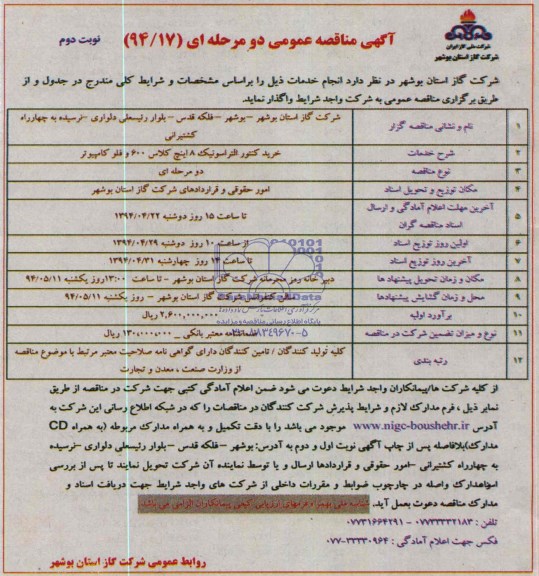 شرکت ملی گاز ایران
شرکت گاز استان بوشهر
آگهی مناقصه عمومی دو مرحله ای (۹۴/۱۷)
نوبت دوم
شرکت گاز استان بوشهر در نظر دارد انجام خدمات ذیل را براساس مشخصات و شرایط کلی مندرج در جدول و از
طریق برگزاری مناقصه عمومی به شرکت واجد شرایط واگذار نماید.
۱ نام و نشانی مناقصه گزار شرکت گاز استان بوشهر – بوشهر – فلکه قدس – بلوار رئیسعلی دلواری – نرسیده به چهارراه
کشتیرانی
۲ شرح خدمات خرید کنتور التراسونیک ۸ اینچ کلاس ۶۰۰ و فلو کامپیوتر
۳ نوع مناقصه دو مرحله ای
۴ مکان توزیع و تحویل اسناد امور حقوقی و قراردادهای شرکت گاز استان بوشهر
۵ آخرین مهلت اعلام آمادگی و ارسال
اسناد مناقصه گران تا ساعت ۱۵ روز دوشنبه ۱۳۹۴/۰۴/۲۲
۶ اولین روز توزیع اسناد از ساعت ۱۰ روز دوشنبه ۱۳۹۴/۰۴/۲۹
۷ آخرین روز توزیع اسناد تا ساعت ۱۴ روز چهارشنبه ۱۳۹۴/۰۴/۳۱
۸ مکان و زمان تحویل پیشنهاد ها دبیر خانه محرمانه شرکت گاز استان بوشهر – تا ساعت ۱۳:۰۰ روز یکشنبه ۹۴/۰۵/۱۱
۹ محل و زمان گشایش پیشنهادها سالن کنفرانس شرکت گاز استان بوشهر – روز یکشنبه ۹۴/۰۵/۱۱
۱۰ برآورد اولیه ۲,۶۰۰,۰۰۰,۰۰۰ ریال
۱۱ نوع و میزان تضمین شرکت در مناقصه ضمانتنامه معتبر بانکی _ ۱۳۰,۰۰۰,۰۰۰ ریال
۱۲ رتبه بندی کلیه تولید کنندگان / تامین کنندگان دارای گواهی نامه صلاحیت معتبر مرتبط با موضوع مناقصه
از وزارت صنعت ، معدن و تجارت
از کلیه شرکت ها/پیمانکاران واجد شرایط دعوت می شود ضمن اعلام آمادگی کتبی جهت شرکت در مناقصه از طریق
نمابر ذیل ، فرم مدارک لازم و شرایط پذیرش شرکت کنندگان در مناقصات را که در شبکه اطلاع رسانی این شرکت به
آدرس www.nigc-boushehr.ir موجود می باشد را با دقت تکمیل و به همراه مدارک مربوطه (به همراه CD
مدارک)بلافاصله پس از چاپ آگهی نوبت اول و دوم به آدرس: بوشهر – فلکه قدس – بلوار رئیسعلی دلواری – نرسیده
به چهارراه کشتیرانی – امور حقوقی و قراردادها ارسال و یا توسط نماینده آن شرکت تحویل نمایند تا پس از بررسی
اسناد/مدارک واصله در چارچوب ضوابط و مقررات داخلی از شرکت های واجد شرایط جهت دریافت اسناد و
مدارک مناقصه دعوت بعمل آید. شناسه ملی بهمراه فرمهای ارزیابی کیفی پیمانکاران الزامی می باشد.
تلفن : ۰۷۷۳۳۳۳۲۱۸۳ – ۰۷۷۳۱۶۶۴۲۹۱
فکس جهت اعلام آمادگی : ۰۷۷-۳۳۳۳۰۹۶۴
روابط عمومی شرکت گاز استان بوشهر